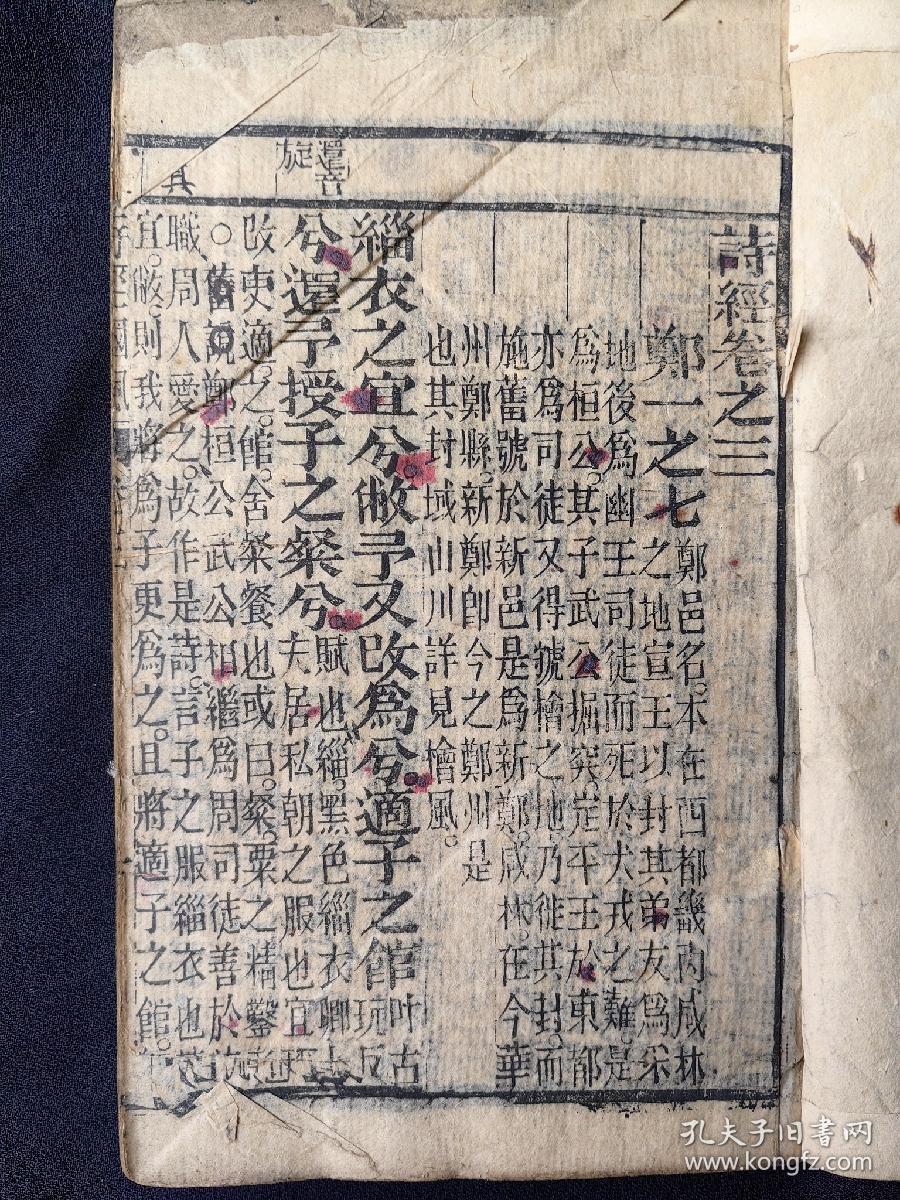 詩經卷之三
鄭一之七
鄭邑名。本在西都畿內咸林
之地宣王以封其弟友爲采
地後爲幽王司徒而死於犬戎之難。是
爲桓公。其子武公掘突。定平王於東都
亦爲司徒又得虢檜之地乃徙其封。而
施舊號於新邑是爲新鄭。咸林。在今華
州鄭縣。新鄭卽今之鄭州是
也其封域山川詳見檜風。
緇衣之宜兮。敝予又改爲兮。適子之館
叶古
玩反
兮還予授子之粲兮。
賦也緇。黑色緇衣卿大
夫居私朝之服也宜稱
改更適。之。館。舍粲餐也或曰。粲。粟之精鑿
○舊說鄭桓公武公相繼爲周司徒善於
職周人愛之。故作是詩。言子之服緇衣也
宜。敝。則我將爲子更爲之。且將適子之館。
還音
旋
其
孔夫子旧书网
www.kongfz.com